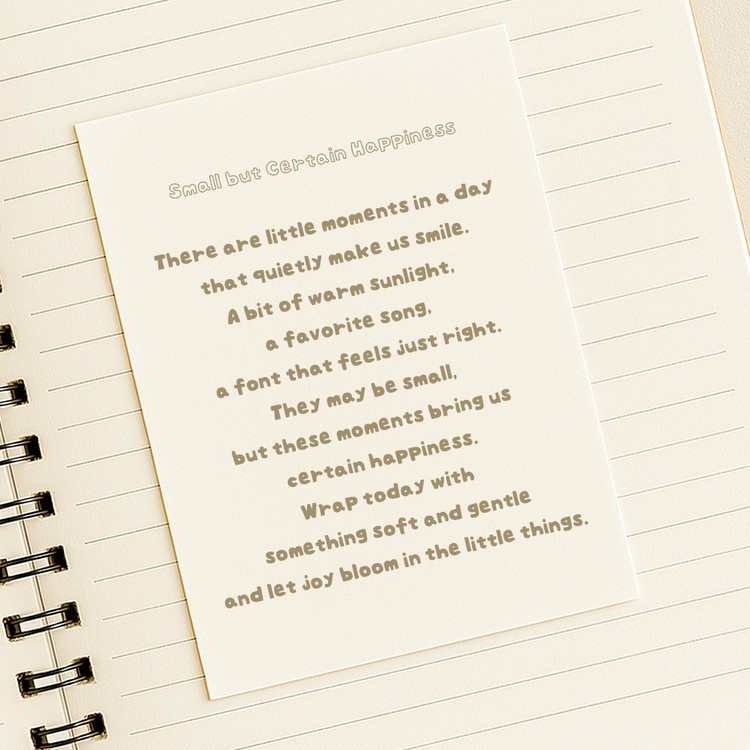 Small but Certain Happiness
There are little moments in a day
that quietly make us smile.
A bit of warm sunlight,
a favorite song,
a font that feels just right.
They may be small,
but these moments bring us
certain happiness.
Wrap today with
something soft and gentle
and let joy bloom in the little things.